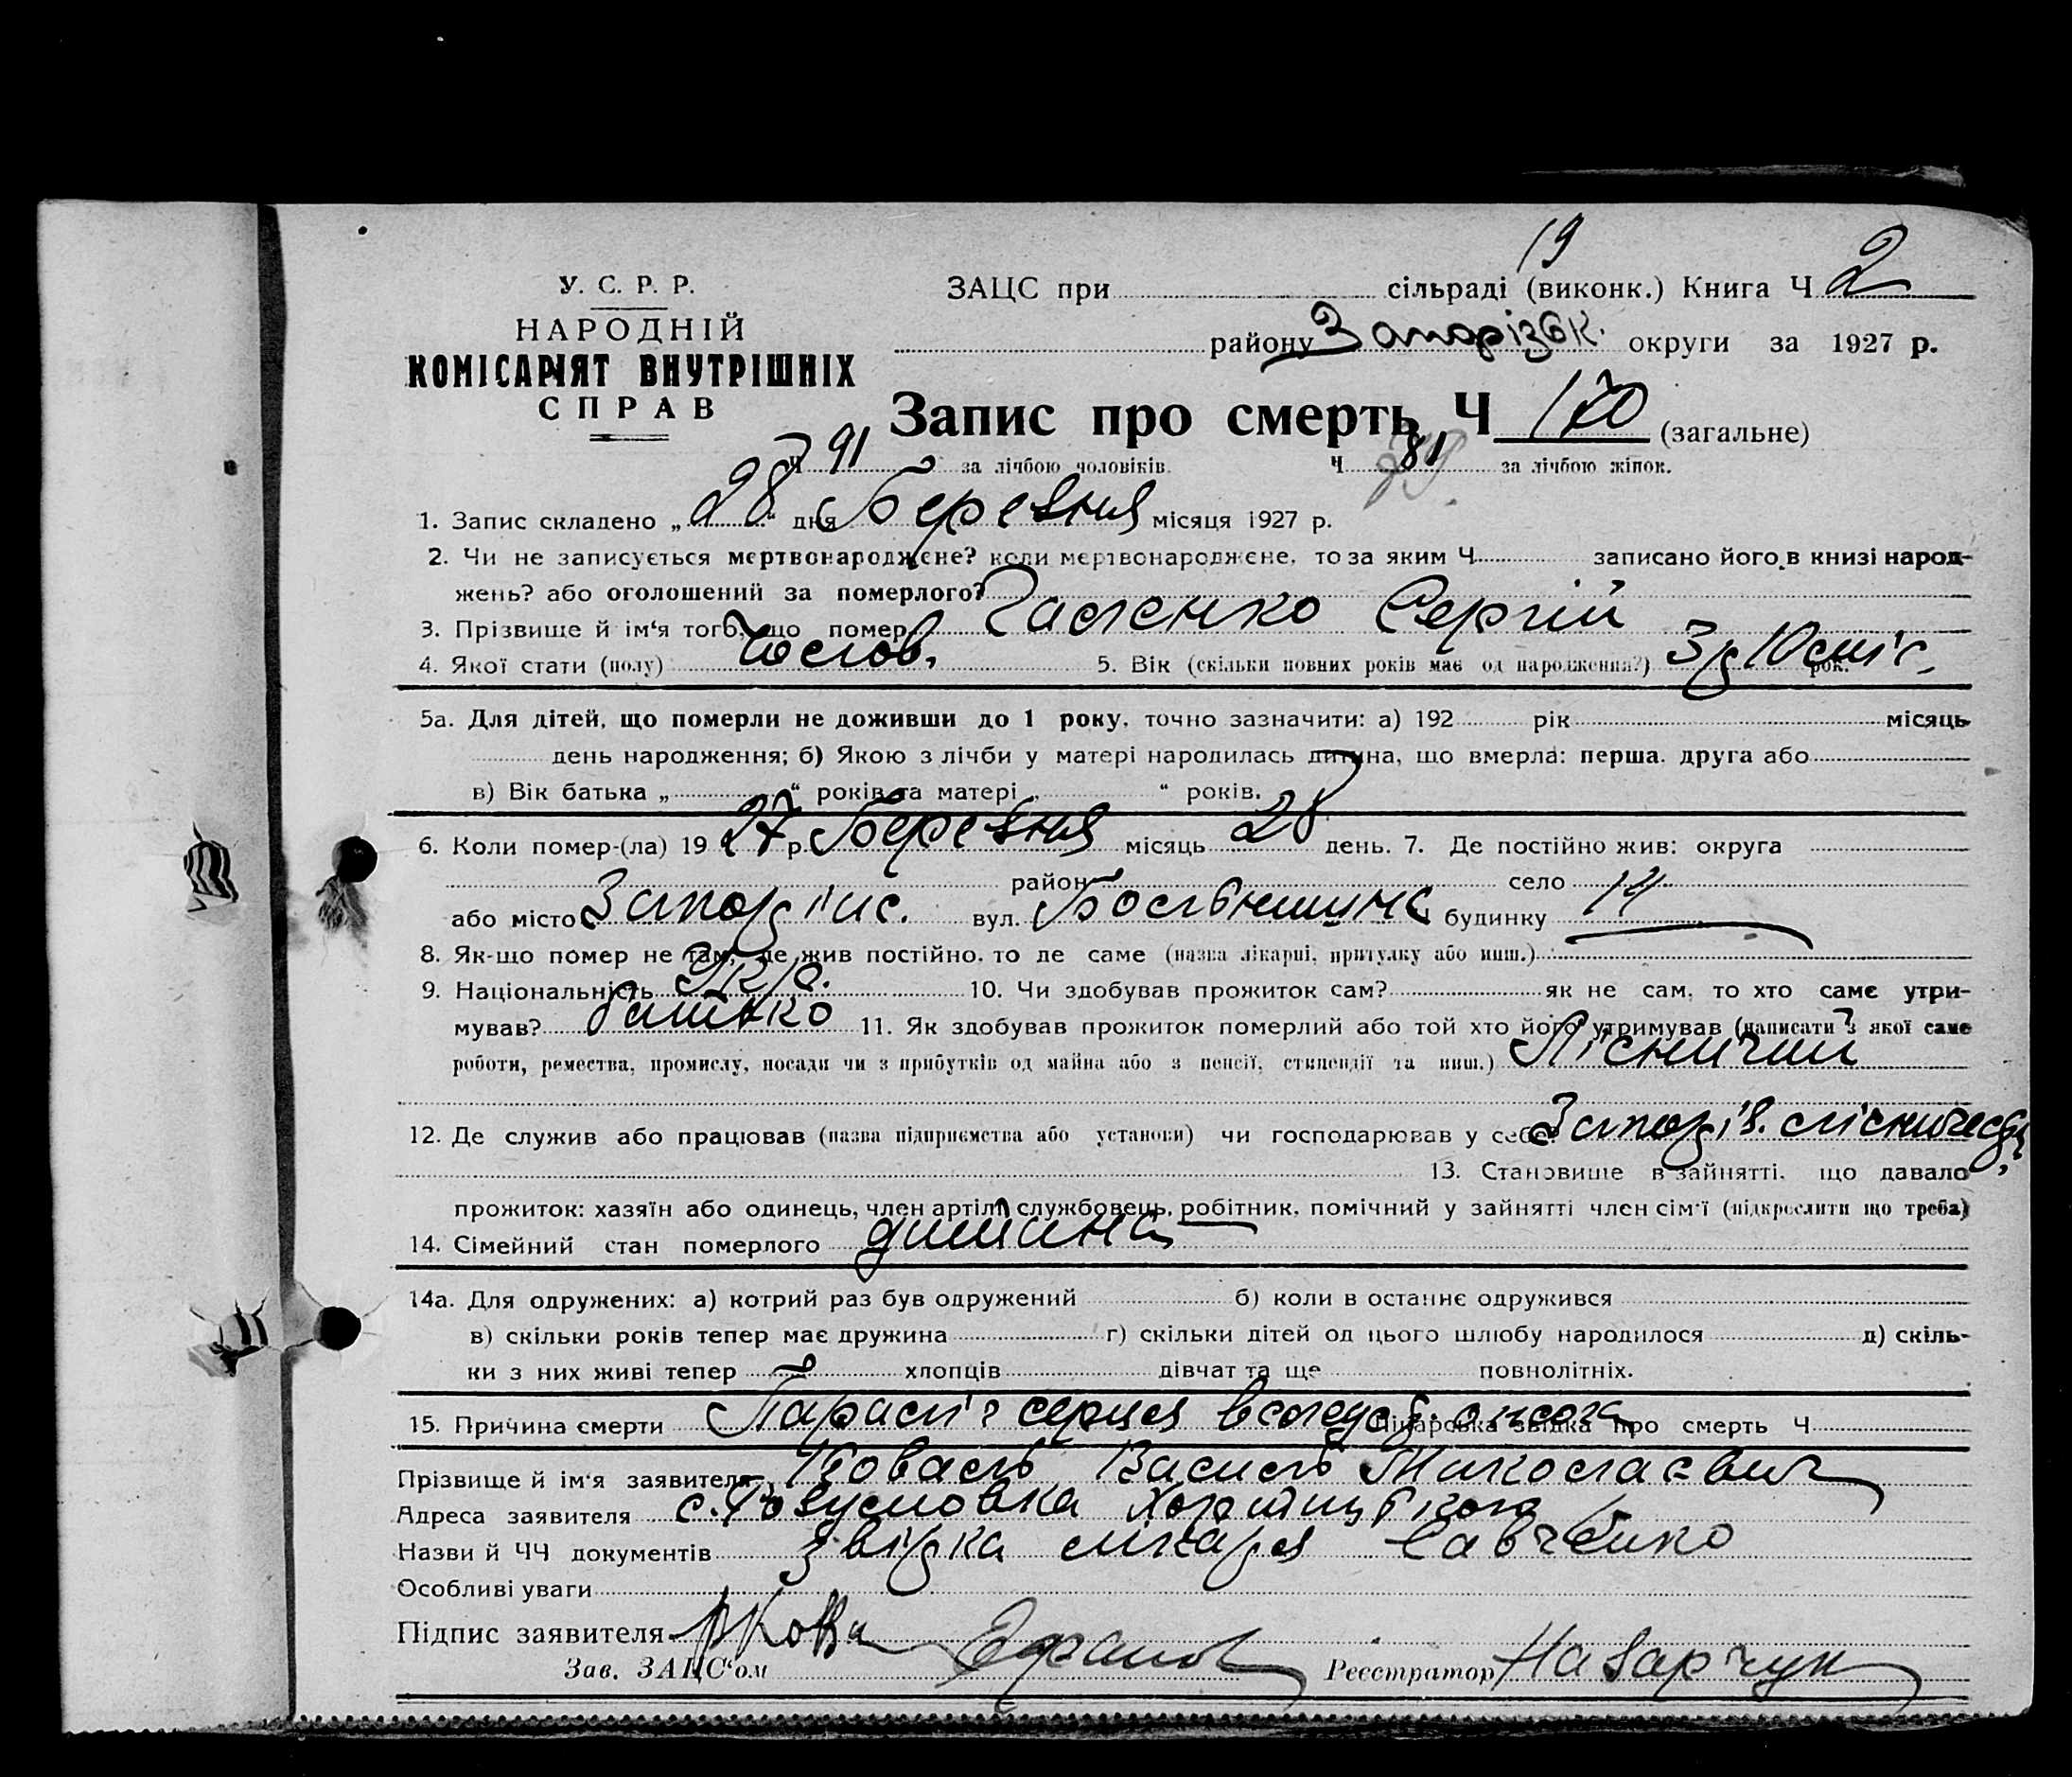 19
У. С. Р. Р.
ЗАЦС при сільраді (виконк.) Книга Ч 2
НАРОДНІЙ
району Запорізьк. округи за 1927 р.
КОМІСАРІЯТ ВНУТРІШНІХ
СПРАВ
Запис про смерть Ч 170 (загальне)
Ч 91 за лічбою чоловіків. Ч 81 за лічбою жінок.
1. Запис складено „28“ дня Березня місяця 1927 р.
2. Чи не записується мертвонароджене? коли мертвонароджене, то за яким Ч записано його в книзі народ-
жень? або оголошений за померлого?
3. Прізвище й ім‘я того, що помер Сергій
4. Якої стати (полу) Чолов. 5. Вік (скільки повних років має од народження?) 3 р 10 міс. рок.
5а. Для дітей, що померли не доживши до 1 року, точно зазначити: а) 192 рік місяць
день народження; б) Якою з лічби у матері народилась дитина, що вмерла: перша, друга або
в) Вік батька „ “ років та матері „ “ років.
6. Коли помер-(ла) 1927 р. Березня місяць 28 день. 7. Де постійно жив: округа
район село
або місто вул. будинку 14
8. Як-що помер не там, де жив постійно, то де саме (назва лікарні, притулку або инш.)
9. Національність Укр. 10. Чи здобував прожиток сам? як не сам, то хто саме утри-
мував? батько 11. Як здобував прожиток померлий або той хто його утримував (написати з якої саме
роботи, ремества, промислу, посади чи з прибутків од майна або з пенсії, стипендії та инш.) Лісничий
12. Де служив або працював (назва підприємства або установи) чи господарював у себе Запорів.
13. Становище в зайнятті, що давало
прожиток: хазяїн або одинець, член артілі, службовець, робітник, помічний у зайнятті член сім‘ї (підкреслити що треба)
14. Сімейний стан померлого дитина
14а. Для одружених: а) котрий раз був одружений б) коли в останнє одружився
в) скільки років тепер має дружина г) скільки дітей од цього шлюбу народилося д) скіль-
ки з них живі тепер хлопців дівчат та ще повнолітніх.
15. Причина смерти Параліч серця Лікарська звідка про смерть Ч
Прізвище й ім‘я заявителя Коваль Василь Миколаєвич
Адреса заявителя с.
Назви й ЧЧ документів звідка лікаря Савченко
Особливі уваги
Підпис заявителя
Зав. ЗАЦС‘ом Реєстратор Назарчук